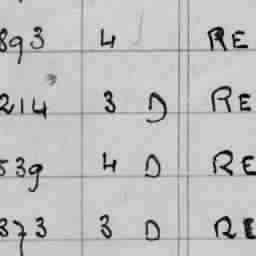 893 4 RE
214 3 D RE
539 4 D RE
373 3 D RE